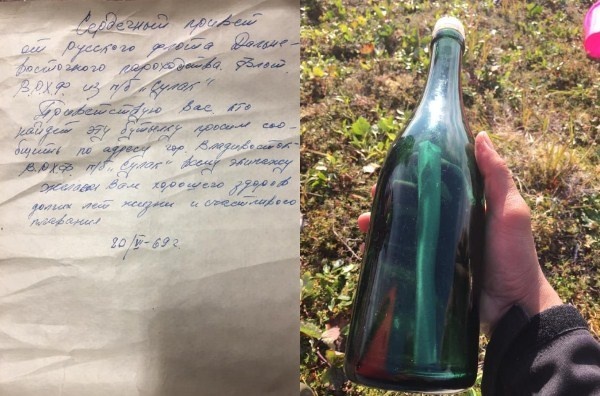 Сердечный привет
от русского флота Дальне-
восточного пароходства.
ВРХФ из п/б „Сулак"
Приветствую Вас, кто
найдет эту бутылку просим соо-
бщить по адресу гор. Владивосток-
ВРХФ п/б „Сулак" всему экипажу
желаем Вам хорошего здоров
долгих лет жизни и счастливого
плавания
20/VI-69 г.